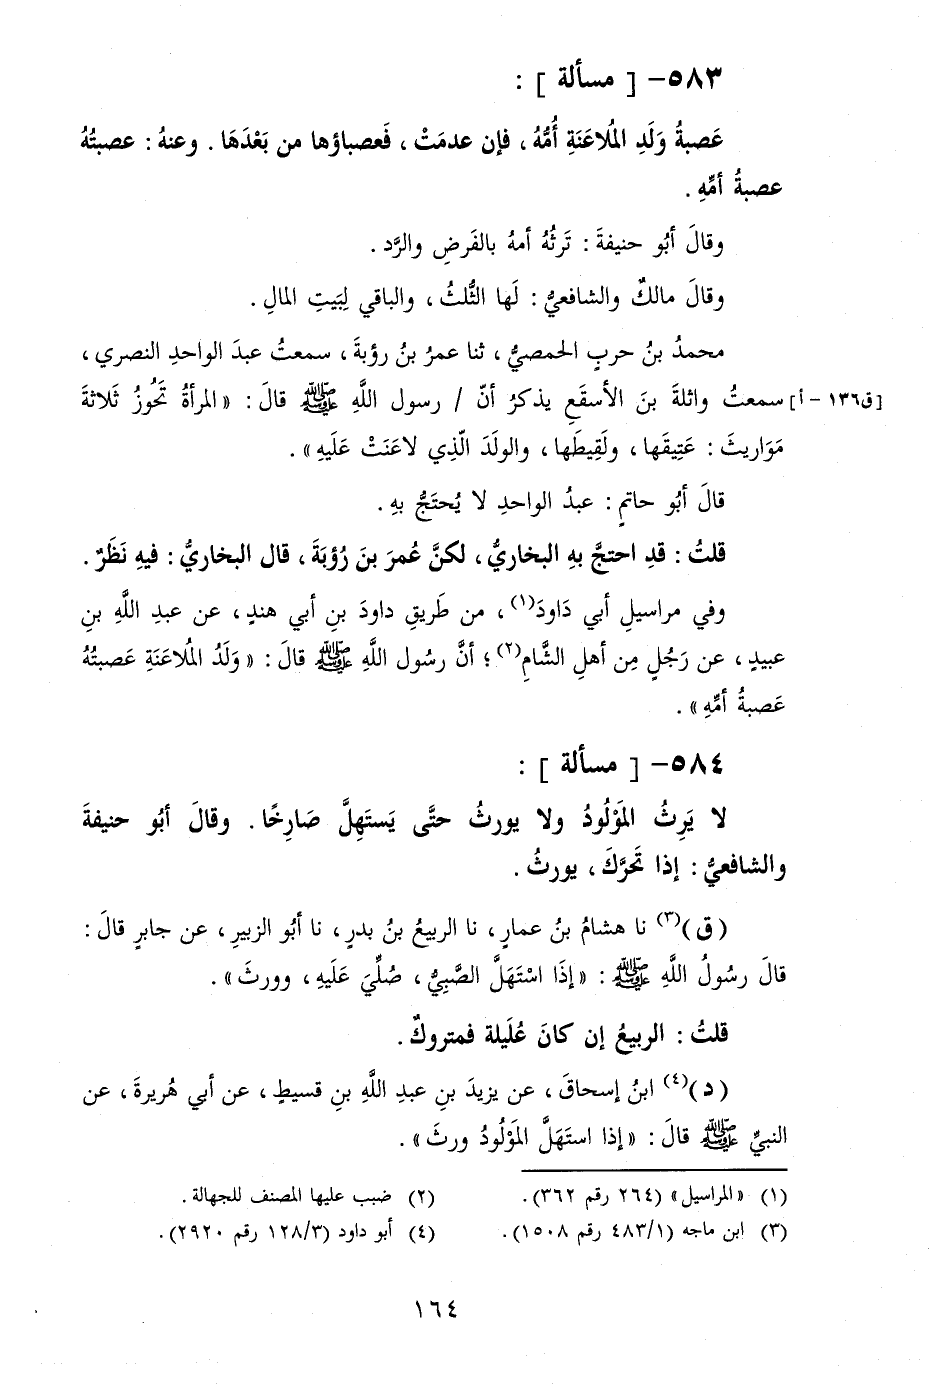 ٥٨٣- [ مسألة ] :
عَصبةُ وَلَدِ المُلاعَنَةِ أُمُّهُ، فإن عدمَتْ، فَعصباؤها من بَعْدَهَا. وعنهُ: عصبتُهُ
عصبةُ أمِّهِ.
وقالَ أبُو حنيفةَ: تَرثُهُ أمهُ بالفَرضِ والرَّد.
وقالَ مالكٌ والشافعيُّ: لَها الثُّلثُ، والباقي لِبَيتِ المَالِ.
محمدُ بنُ حربٍ الحَمصيُّ، ثنا عمرُ بنُ رؤبةَ، سمعتُ عبدَ الواحدِ النصري،
[ق١٣٦ - أ] سمعتُ واثلةَ بنَ الأسقَعِ يذكرُ أنّ / رسول اللَّهِ ﷺ قالَ: «المرأةُ تَحُوزُ ثَلاثةَ
مَوَاريثَ: عَتِيقَها، ولَقِيطَها، والولَدَ الّذِي لاعَنَتْ عَلَيهِ».
قالَ أبُو حاتمٍ: عبدُ الواحدِ لا يُحتَجُّ بهِ.
قلتُ: قدِ احتجَّ بهِ البخاريُّ، لكنَّ عُمرَ بنَ رُؤبَةَ، قال البخاريُّ: فيهِ نَظَرٌ.
وفي مراسيلِ أبي دَاودَ(١)، من طَريقِ داودَ بنِ أبي هندٍ، عن عبدِ اللَّهِ بنِ
عبيدٍ، عن رَجُلٍ مِن أهلِ الشَّامِ(٢)؛ أنَّ رسُول اللَّهِ ﷺ قالَ: «وَلَدُ المُلاعَنَةِ عَصبتُهُ
عَصبةُ أمِّهِ».
٥٨٤- [ مسألة ] :
لا يَرِثُ المَوْلُودُ ولا يورثُ حتَّى يَستَهِلَّ صَارِخًا. وقالَ أبُو حنيفةَ
والشافعيُّ: إذا تَحَرَّكَ، يورثُ.
(ق)(٣) نا هشامُ بنُ عمارٍ، نا الربيعُ بنُ بدرٍ، نا أبُو الزبيرِ، عن جابرٍ قالَ:
قالَ رسُولُ اللَّهِ ﷺ: «إذَا اسْتَهَلَّ الصَّبِيُّ، صُلِّيَ عَلَيهِ، وورثَ».
قلتُ: الربيعُ إن كانَ عُلَيلة فمتروكٌ.
(د)(٤) ابنُ إسحاقَ، عن يزيدَ بنِ عبدِ اللَّهِ بنِ قسيطٍ، عن أبي هُريرةَ، عن
النبيِّ ﷺ قالَ: «إذا استَهَلَّ المَوْلُودُ ورثَ».
(١) «المراسيل» (٢٦٤ رقم ٣٦٢). (٢) ضبب عليها المصنف للجهالة.
(٣) ابن ماجه (٤٨٣/١ رقم ١٥٠٨). (٤) أبو داود (١٢٨/٣ رقم ٢٩٢٠).
١٦٤